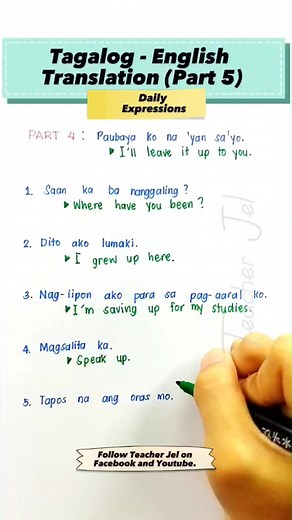 Tagalog - English
Translation (Part 5)
Daily
Expressions
PART 4 : Paubaya ko na 'yan sa'yo.
I'll leave it up to you.
1. Saan ka ba nanggaling?
Where have you been?
2. Dito ako lumaki.
I grew up here.
3. Nag-iipon ako para sa pag-aaral ko.
I'm saving up for my studies.
4. Magsalita ka.
Speak up.
5. Tapos na ang oras mo.
Teacher Jel
Follow Teacher Jel on
Facebook and Youtube.